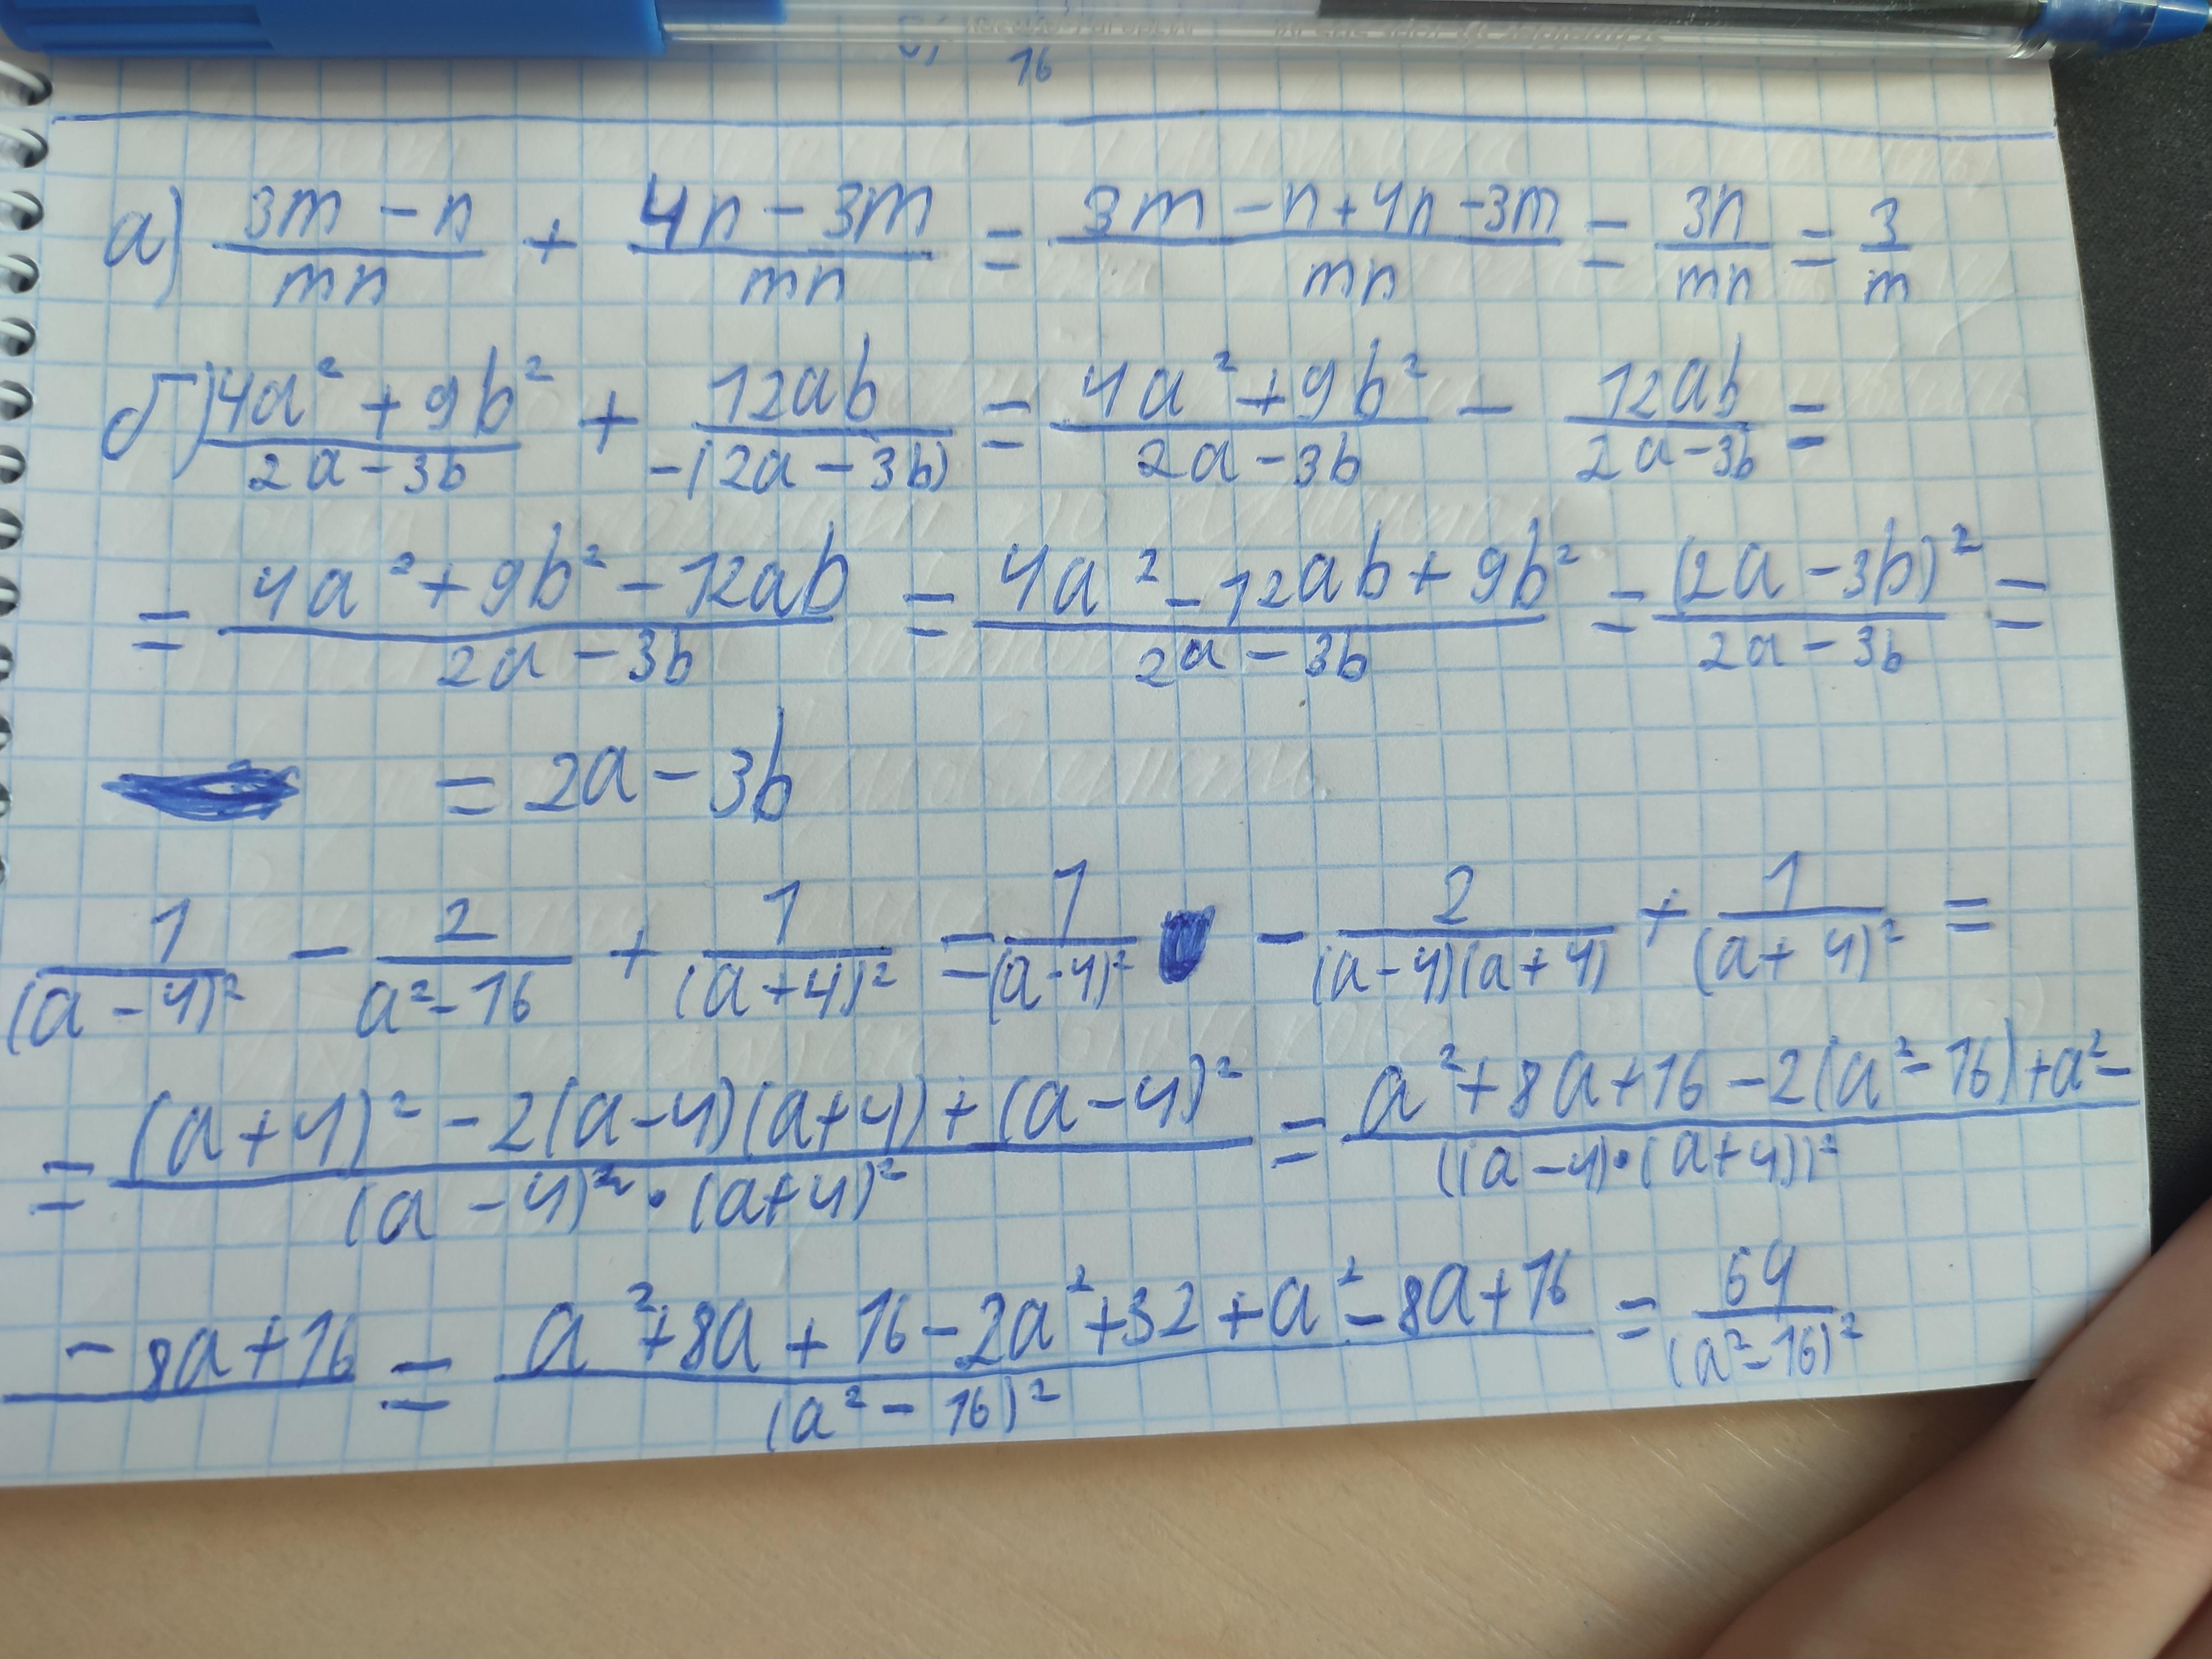 16
а) (3m - n)/(mn) + (4n - 3m)/(mn) = (3m - n + 4n - 3m)/(mn) = 3n/(mn) = 3/m
б) (4a² + 9b²)/(2a - 3b) + 12ab/(-(2a - 3b)) = (4a² + 9b²)/(2a - 3b) - 12ab/(2a - 3b) =
= (4a² + 9b² - 12ab)/(2a - 3b) = (4a² - 12ab + 9b²)/(2a - 3b) = (2a - 3b)²/(2a - 3b) =
= 2a - 3b
1/(a - 4)² - 2/(a² - 16) + 1/(a + 4)² = 1/(a - 4)² - 2/((a - 4)(a + 4)) + 1/(a + 4)² =
= ((a + 4)² - 2(a - 4)(a + 4) + (a - 4)²)/((a - 4)² · (a + 4)²) = (a² + 8a + 16 - 2(a² - 16) + a² -)/(((a - 4) · (a + 4))²)
- 8a + 16 = (a² + 8a + 16 - 2a² + 32 + a² - 8a + 16)/(a² - 16)² = 64/(a² - 16)²